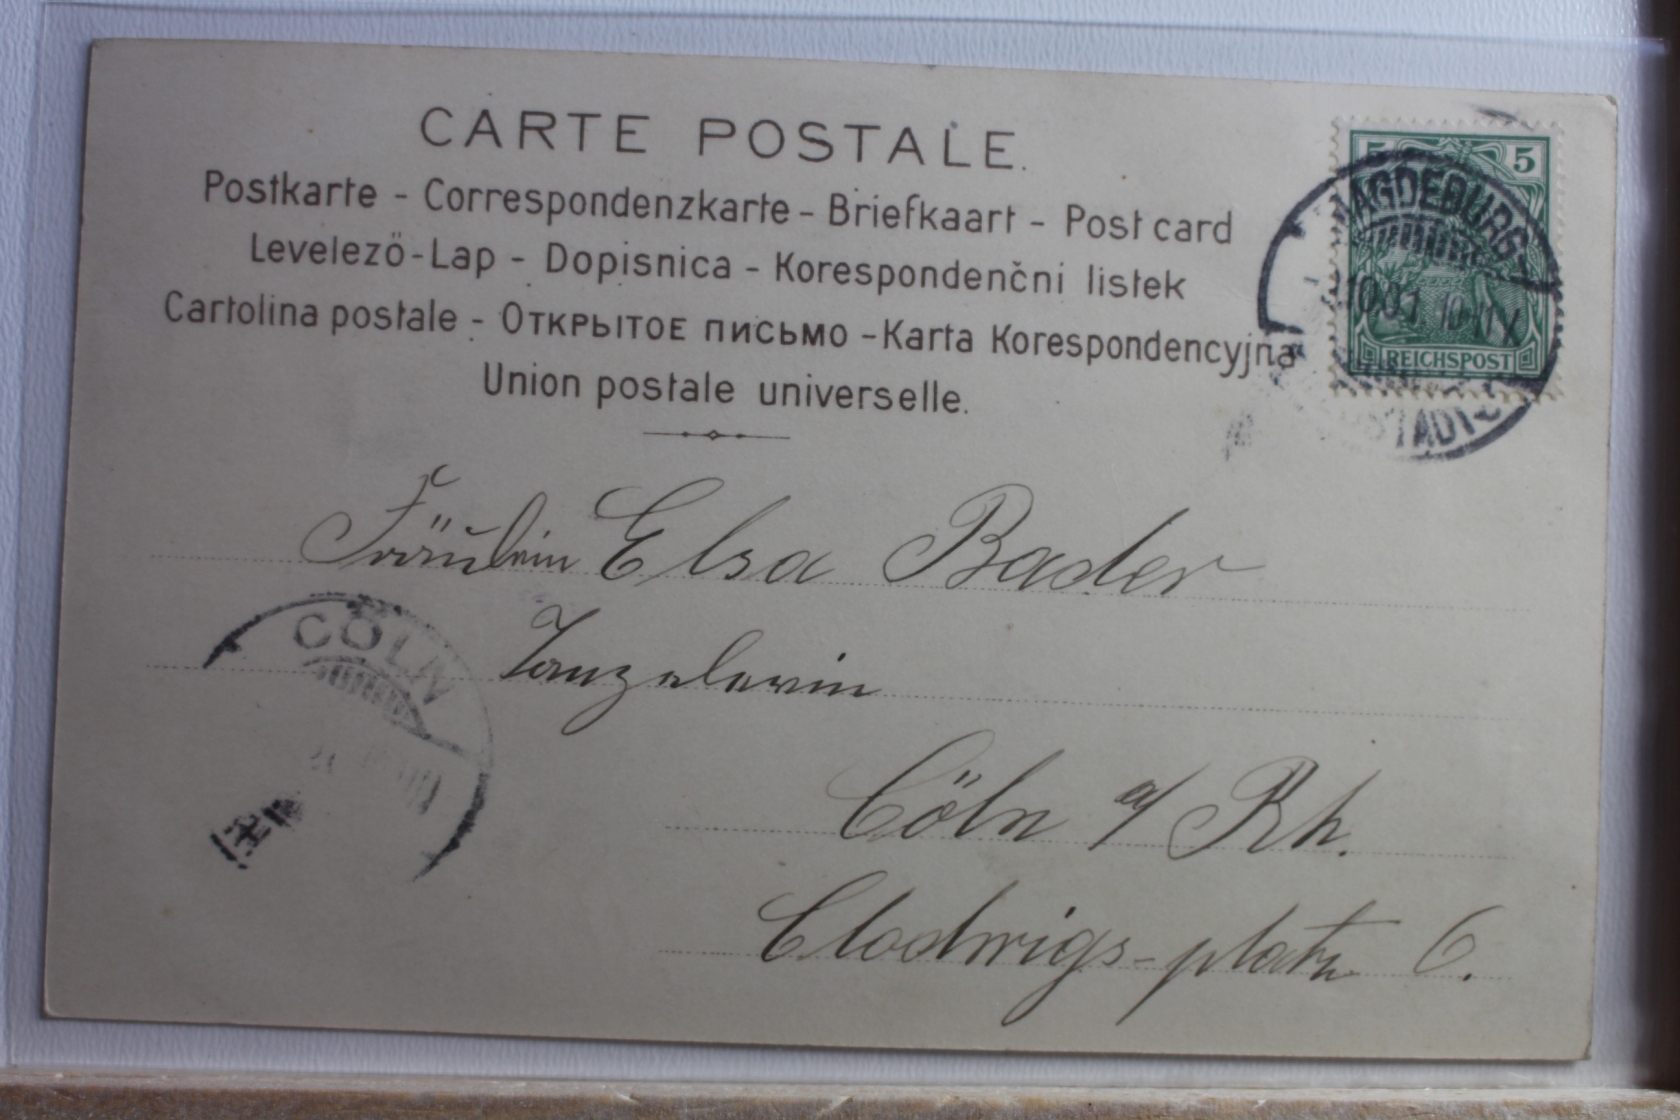 CARTE POSTALE.
Postkarte - Correspondenzkarte - Briefkaart - Post card
Levelező-Lap - Dopisnica - Korespondenčni listek
Cartolina postale - Открытое письмо - Karta Korespondencyjna
Union postale universelle.
5 5
MAGDEBURG
REICHSPOST
Fräulein Elsa Bader
CÖLN
Cöln a/ Rh.
Clodwigs-platz 6.